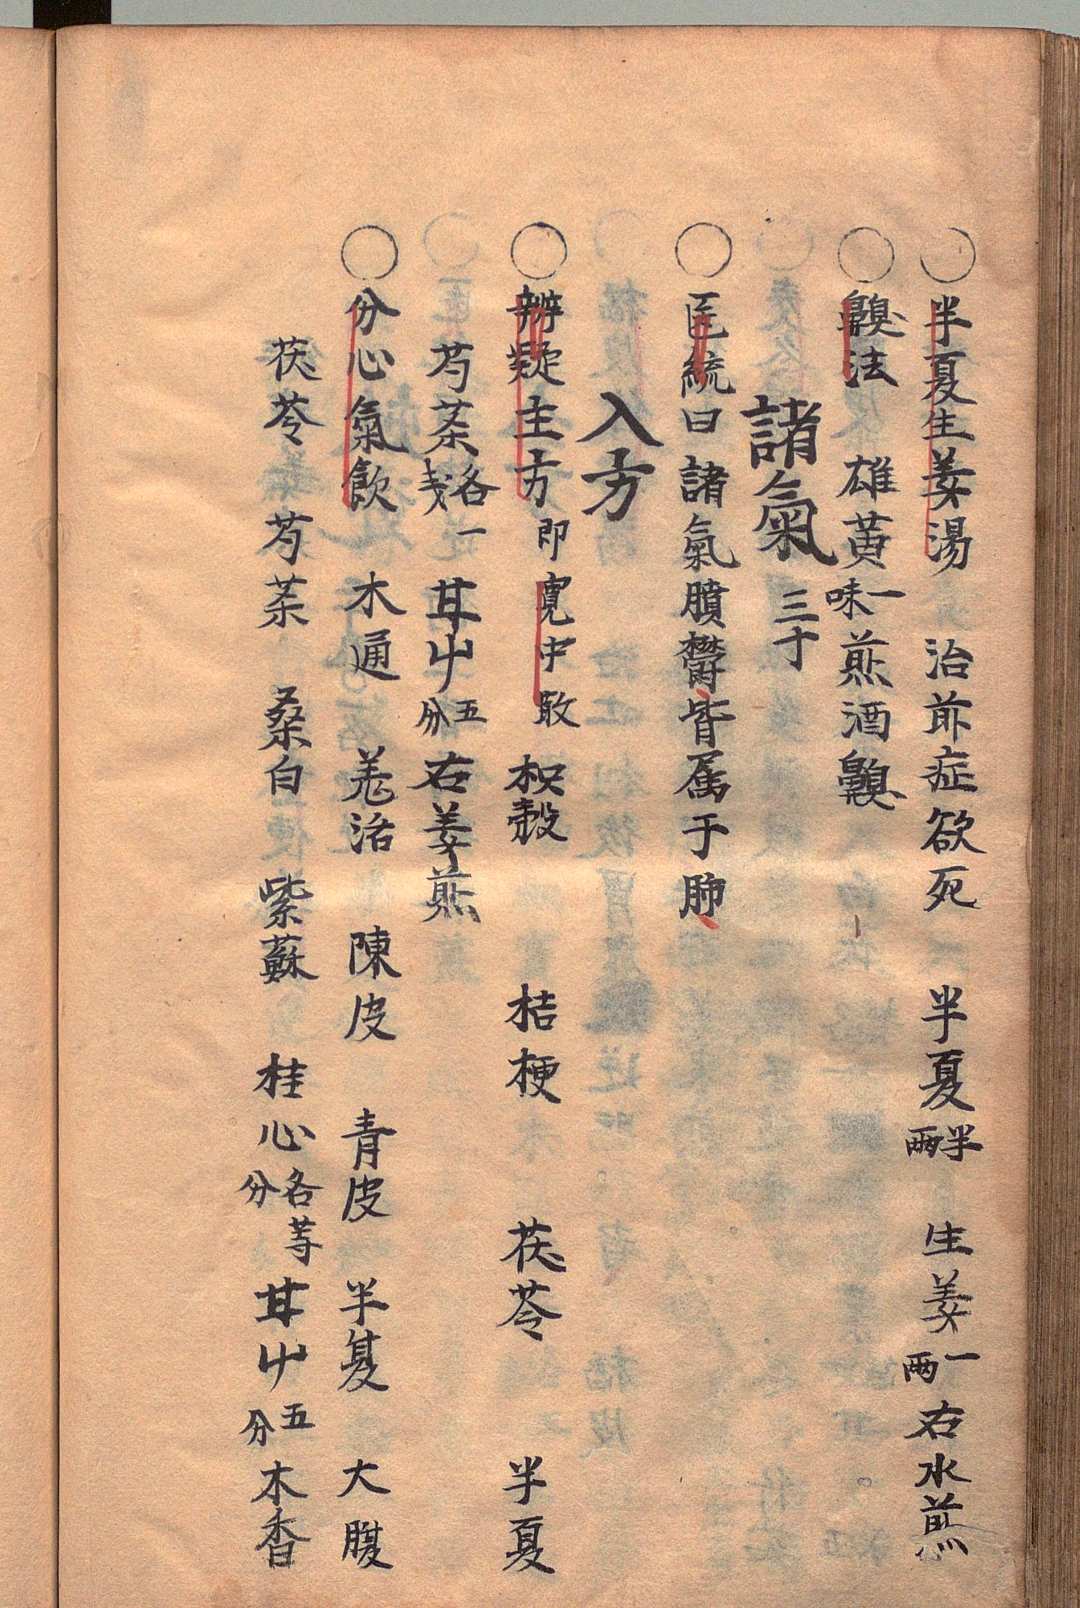 ○半夏生姜湯 治前症欲死 半夏半兩 生姜一兩右水煎
○法 雄黃一味煎酒
諸氣 三十
○医統曰 諸氣膹鬱皆属于肺
入方
○辨疑主方 即寬中散 枳殼 桔梗 茯苓 半夏
芍茶各一戔 甘艸五分右姜煎
○分心氣飲 木通 羌活 陳皮 青皮 半夏 大腹
茯苓 芍茶 桑白 紫蘇 桂心各等分 甘艸五分 木香